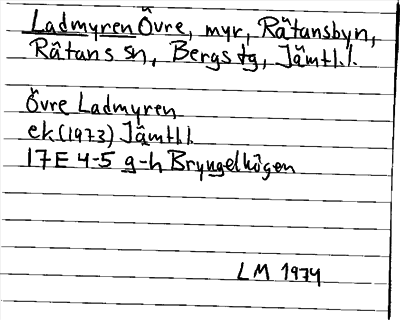 Ladmyren Övre, myr, Rätansbyn,
Rätans sn, Bergs tg, Jämtl.l.
Övre Ladmyren
ek (1973) Jämtl.l.
17E 4-5 g-h Bryngelhögen
LM 1974